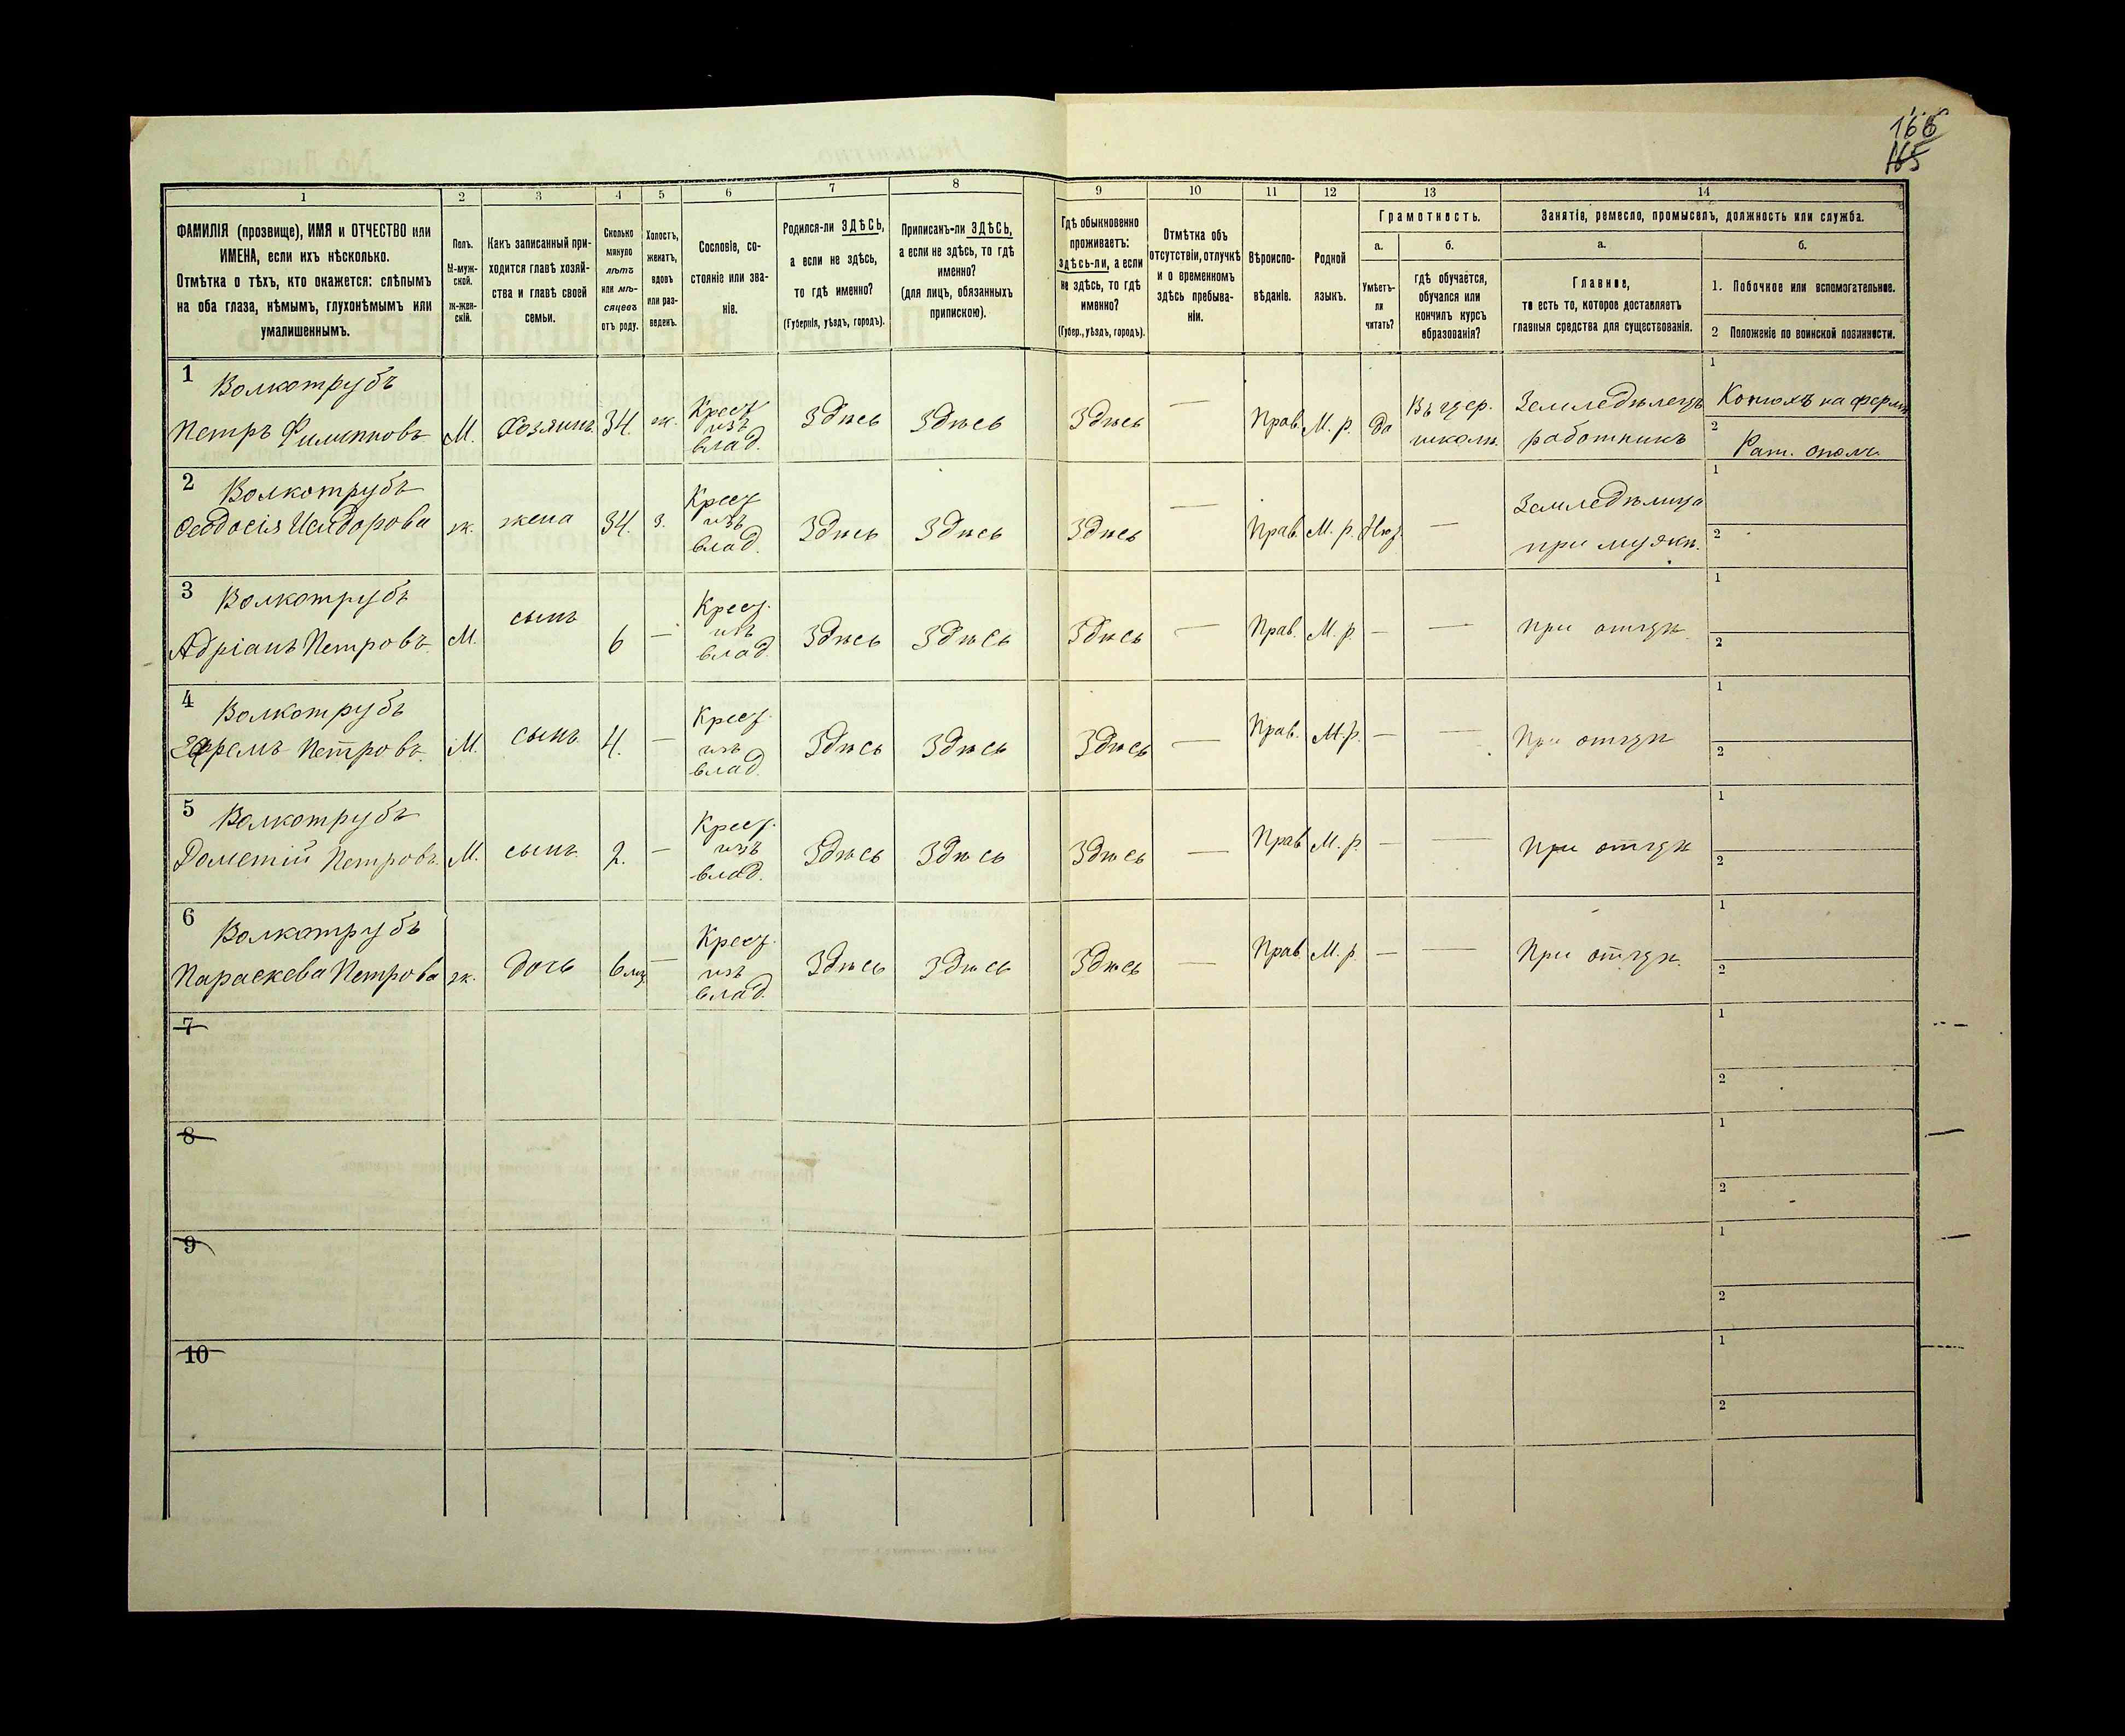 166
165
1
2
3
4
5
6
7
8
9
10
11
12
13
14
ФАМИЛІЯ (прозвище), ИМЯ и ОТЧЕСТВО или
ИМЕНА, если ихъ нѣсколько.
Отмѣтка о тѣхъ, кто окажется: слѣпымъ
на оба глаза, нѣмымъ, глухонѣмымъ или
умалишеннымъ.
Полъ.
М-муж-
ской.
ж-жен-
скій.
Какъ записанный при-
ходится главѣ хозяй-
ства и главѣ своей
семьи.
Сколько
минуло
лѣтъ
или мѣ-
сяцевъ
отъ роду.
Холостъ,
женатъ,
вдовъ
или раз-
веденъ.
Сословіе, со-
стояніе или зва-
ніе.
Родился-ли ЗДѢСЬ,
а если не здѣсь,
то гдѣ именно?
(Губернія, уѣздъ, городъ).
Приписанъ-ли ЗДѢСЬ,
а если не здѣсь, то гдѣ
именно?
(для лицъ, обязанныхъ
припискою).
Гдѣ обыкновенно
проживаетъ:
здѣсь-ли, а если
не здѣсь, то гдѣ
именно?
(Губер., уѣздъ, городъ).
Отмѣтка объ
отсутствіи, отлучкѣ
и о временномъ
здѣсь пребыва-
ніи.
Вѣроиспо-
вѣданіе.
Родной
языкъ.
Грамотность.
а.
б.
Умѣетъ-
ли
читать?
гдѣ обучается,
обучался или
кончилъ курсъ
образованія?
Занятіе, ремесло, промыселъ, должность или служба.
а.
б.
Главное,
то есть то, которое доставляетъ
главныя средства для существованія.
1. Побочное или вспомогательное.
2 Положеніе по воинской повинности.
1 Волкотрубъ
Петръ Филипповъ М. Хозяинъ 34. ж. Крест. изъ влад. Здѣсь Здѣсь Здѣсь — Прав. М. р. да Въ цер. школѣ. Земледѣлецъ работникъ
1 Конюхъ на фермѣ
2 Рат. ополч.
2 Волкотрубъ
Ѳеодосія Исидорова ж. жена 34. з. Крест. изъ влад. Здѣсь Здѣсь Здѣсь — Прав. М. р. — Земледѣлица при мужѣ.
1
2
3 Волкотрубъ
Адріанъ Петровъ. М. сынъ 6 — Крест. изъ влад. Здѣсь Здѣсь Здѣсь — Прав. М. р. — — При отцѣ.
1
2
4 Волкотрубъ
Ефремъ Петровъ. М. сынъ 4. — Крест. изъ влад. Здѣсь Здѣсь Здѣсь — Прав. М. р. — — При отцѣ
1
2
5 Волкотрубъ
Дометій Петровъ. М. сынъ 2. — Крест. изъ влад. Здѣсь Здѣсь Здѣсь — Прав. М. р. — — При отцѣ
1
2
6 Волкотрубъ
Параскева Петрова ж. дочь 6 мц. — Крест. изъ влад. Здѣсь Здѣсь Здѣсь — Прав. М. р. — — При отцѣ.
1
2
7
1
2
8
1
2
9
1
2
10
1
2